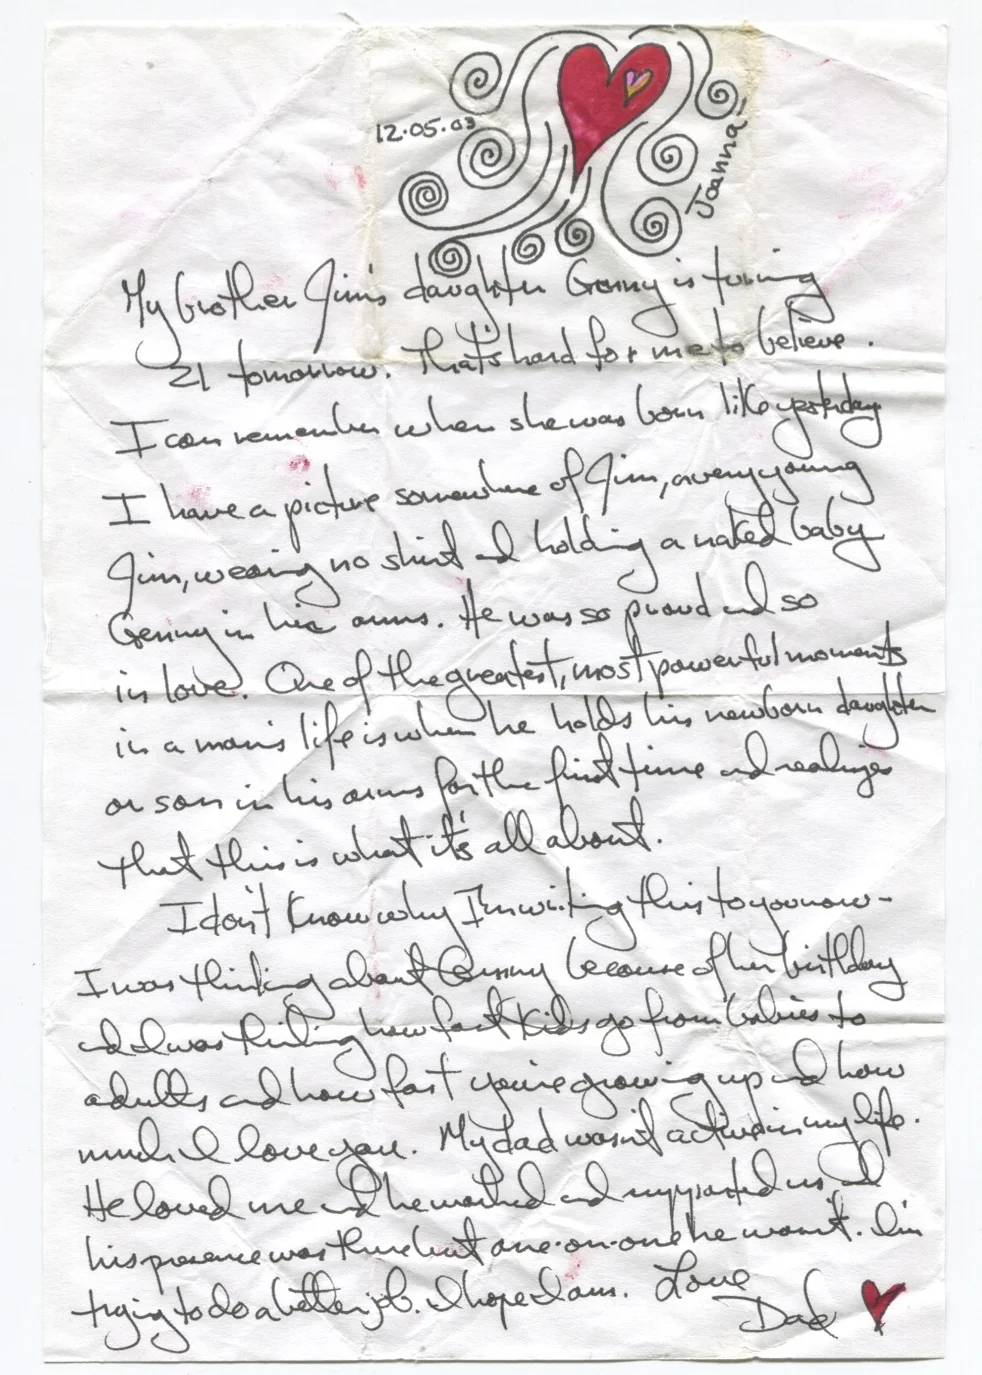 12.05.03
Joanna
My brother Jim's daughter Genny is turning
21 tomorrow. That's hard for me to believe.
I can remember when she was born like yesterday
I have a picture somewhere of Jim, a very young
Jim, wearing no shirt and holding a naked baby
Genny in his arms. He was so proud and so
in love. One of the greatest, most powerful moments
in a man's life is when he holds his newborn daughter
or son in his arms for the first time and realizes
that this is what it's all about.
I don't know why I'm writing this to you now -
I was thinking about Genny because of her birthday
and I was thinking how fast kids go from babies to
adults and how fast you're growing up and how
much I love you. My dad wasn't active in my life.
He loved me and he worked and supported us and
his presence was there but one-on-one he wasn't. I'm
trying to do a better job. I hope I am. Love
Dad